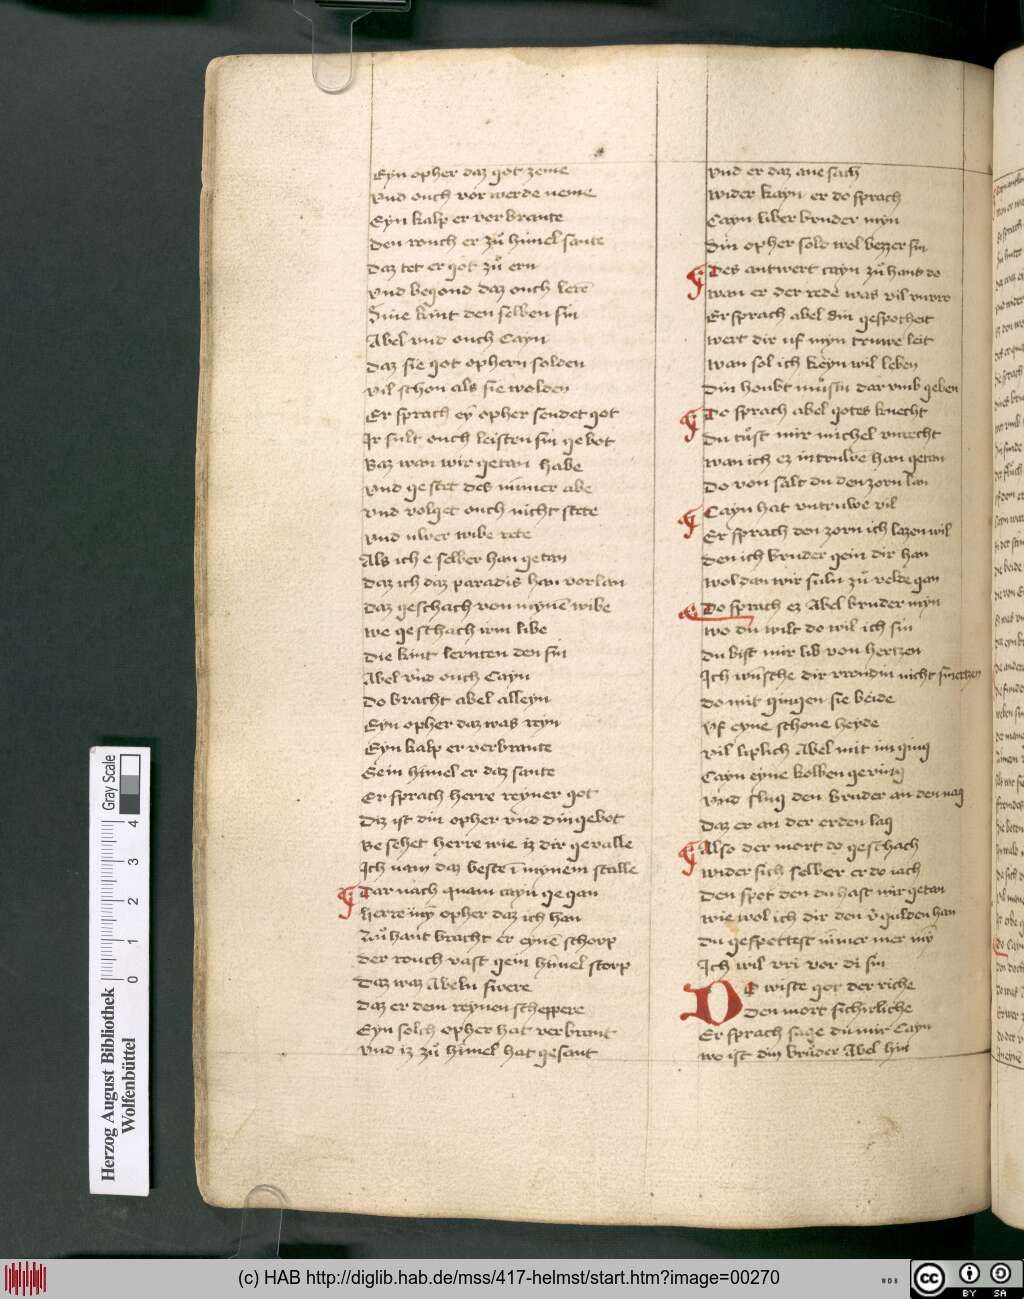 Eyn opher daz got zeme
vnd ouch vor werde neme
Eyn kalp er vorbrante
den rouch er zů himel sante
daz tet er got zů ern
vnd begond daz ouch lerē
Sine kint den selben sin
Abel vnd ouch Cayn
daz sie got ophern solden
vil schon als sie wolden
Er sprach eȳ opher sendet got
Ir sult ouch leisten sin gebot
Baz wan wir getan habe
vnd gestet des nimer abe
vnd volget ouch nicht stete
vnd uwer wibe rete
Als ich e selber han getan
daz ich daz paradis han vorlan
daz geschach von mynē wibe
we geschach irm libe
die kint lernten den sin
Abel vnd ouch Cayn
do bracht abel alleyn
Eyn opher daz was reyn
Eyn kalp er verbrante
Gein himel er daz sante
Er sprach herre reyner got
Diz ist din opher vnd din gebot
Besehet herre wie iz dir gevalle
Ich nam daz beste ī mynem stalle
Dar nach quam cayn gegan
herre mȳ opher daz ich han
Zuhant bracht er eynē schorp
der rouch vast gein himel storp
daz waz Abeln swere
daz er dem reynen scheppere
Eyn solch opher hat verbrant
vnd iz zů himel hat gesant
vnd er daz ane sach
wider kayn er do sprach
Cayn liber bruder myn
Din opher sold wol bezzer sin
Des antwert cayn zů hant do
wan er der rede was vil vnvro
Er sprach abel din gespotheit
wert dir uf myn truwe leit
wan sol ich keyn wil leben
din houbt můstu dar vmb geben
Do sprach abel gotes knecht
du tůst mir michel vnrecht
wan ich ez in truwe han getan
Do von salt du den zorn lan
Cayn hat vntruwe vil
Er sprach den zorn ich lazen wil
den ich bruder gein dir han
wol dan wir suln zů velde gan
Do sprach ez Abel bruder myn
wo du wilt do wil ich sin
du bist mir lib von hertzen
Ich wūsche dir vroudin nicht smertzen
do mit gingen sie beide
vf eyne schone heyde
vil liplich Abel mit im ging
Cayn eyne kolben geving
vnd slug den bruder an den nag
daz er an der erden lag
Also der mort do geschach
wider sich selber er do iach
den spot den du hast mir getan
wie wol ich dir den v̊gulden han
du gespottest nimer mer mȳ
Ich wil vri vor di sin
Do wiste got der riche
den mort sichirliche
Er sprach sage du mir Cayn
wo ist din bruder Abel hin
Gray Scale
4
3
2
1
0
Herzog August Bibliothek
Wolfenbüttel
(c) HAB http://diglib.hab.de/mss/417-helmst/start.htm?image=00270
WDB
cc
BY SA